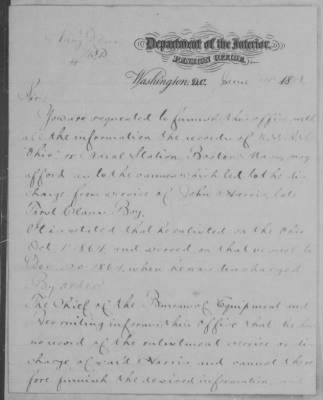 Department of the Interior,
PENSION OFFICE,
Washington, D.C. June 18
Sir:
You are requested to furnish this office with
all the information the records of U.S.S.
"Ohio" or Naval Station, Boston, Mass, may
afford as to the cause which led to the dis
charge from service of John Harris, late
First Class Boy.
It is stated that he enlisted on the Ohio
Oct 1st 1864 and served on that vessel to
Dec. 20, 1864, when he was discharged
The Chief of the Bureau of Equipment and
Recruiting informs this Office that he has
no record of the enlistment service or dis
charge of said Harris and cannot there
fore furnish the desired information, and